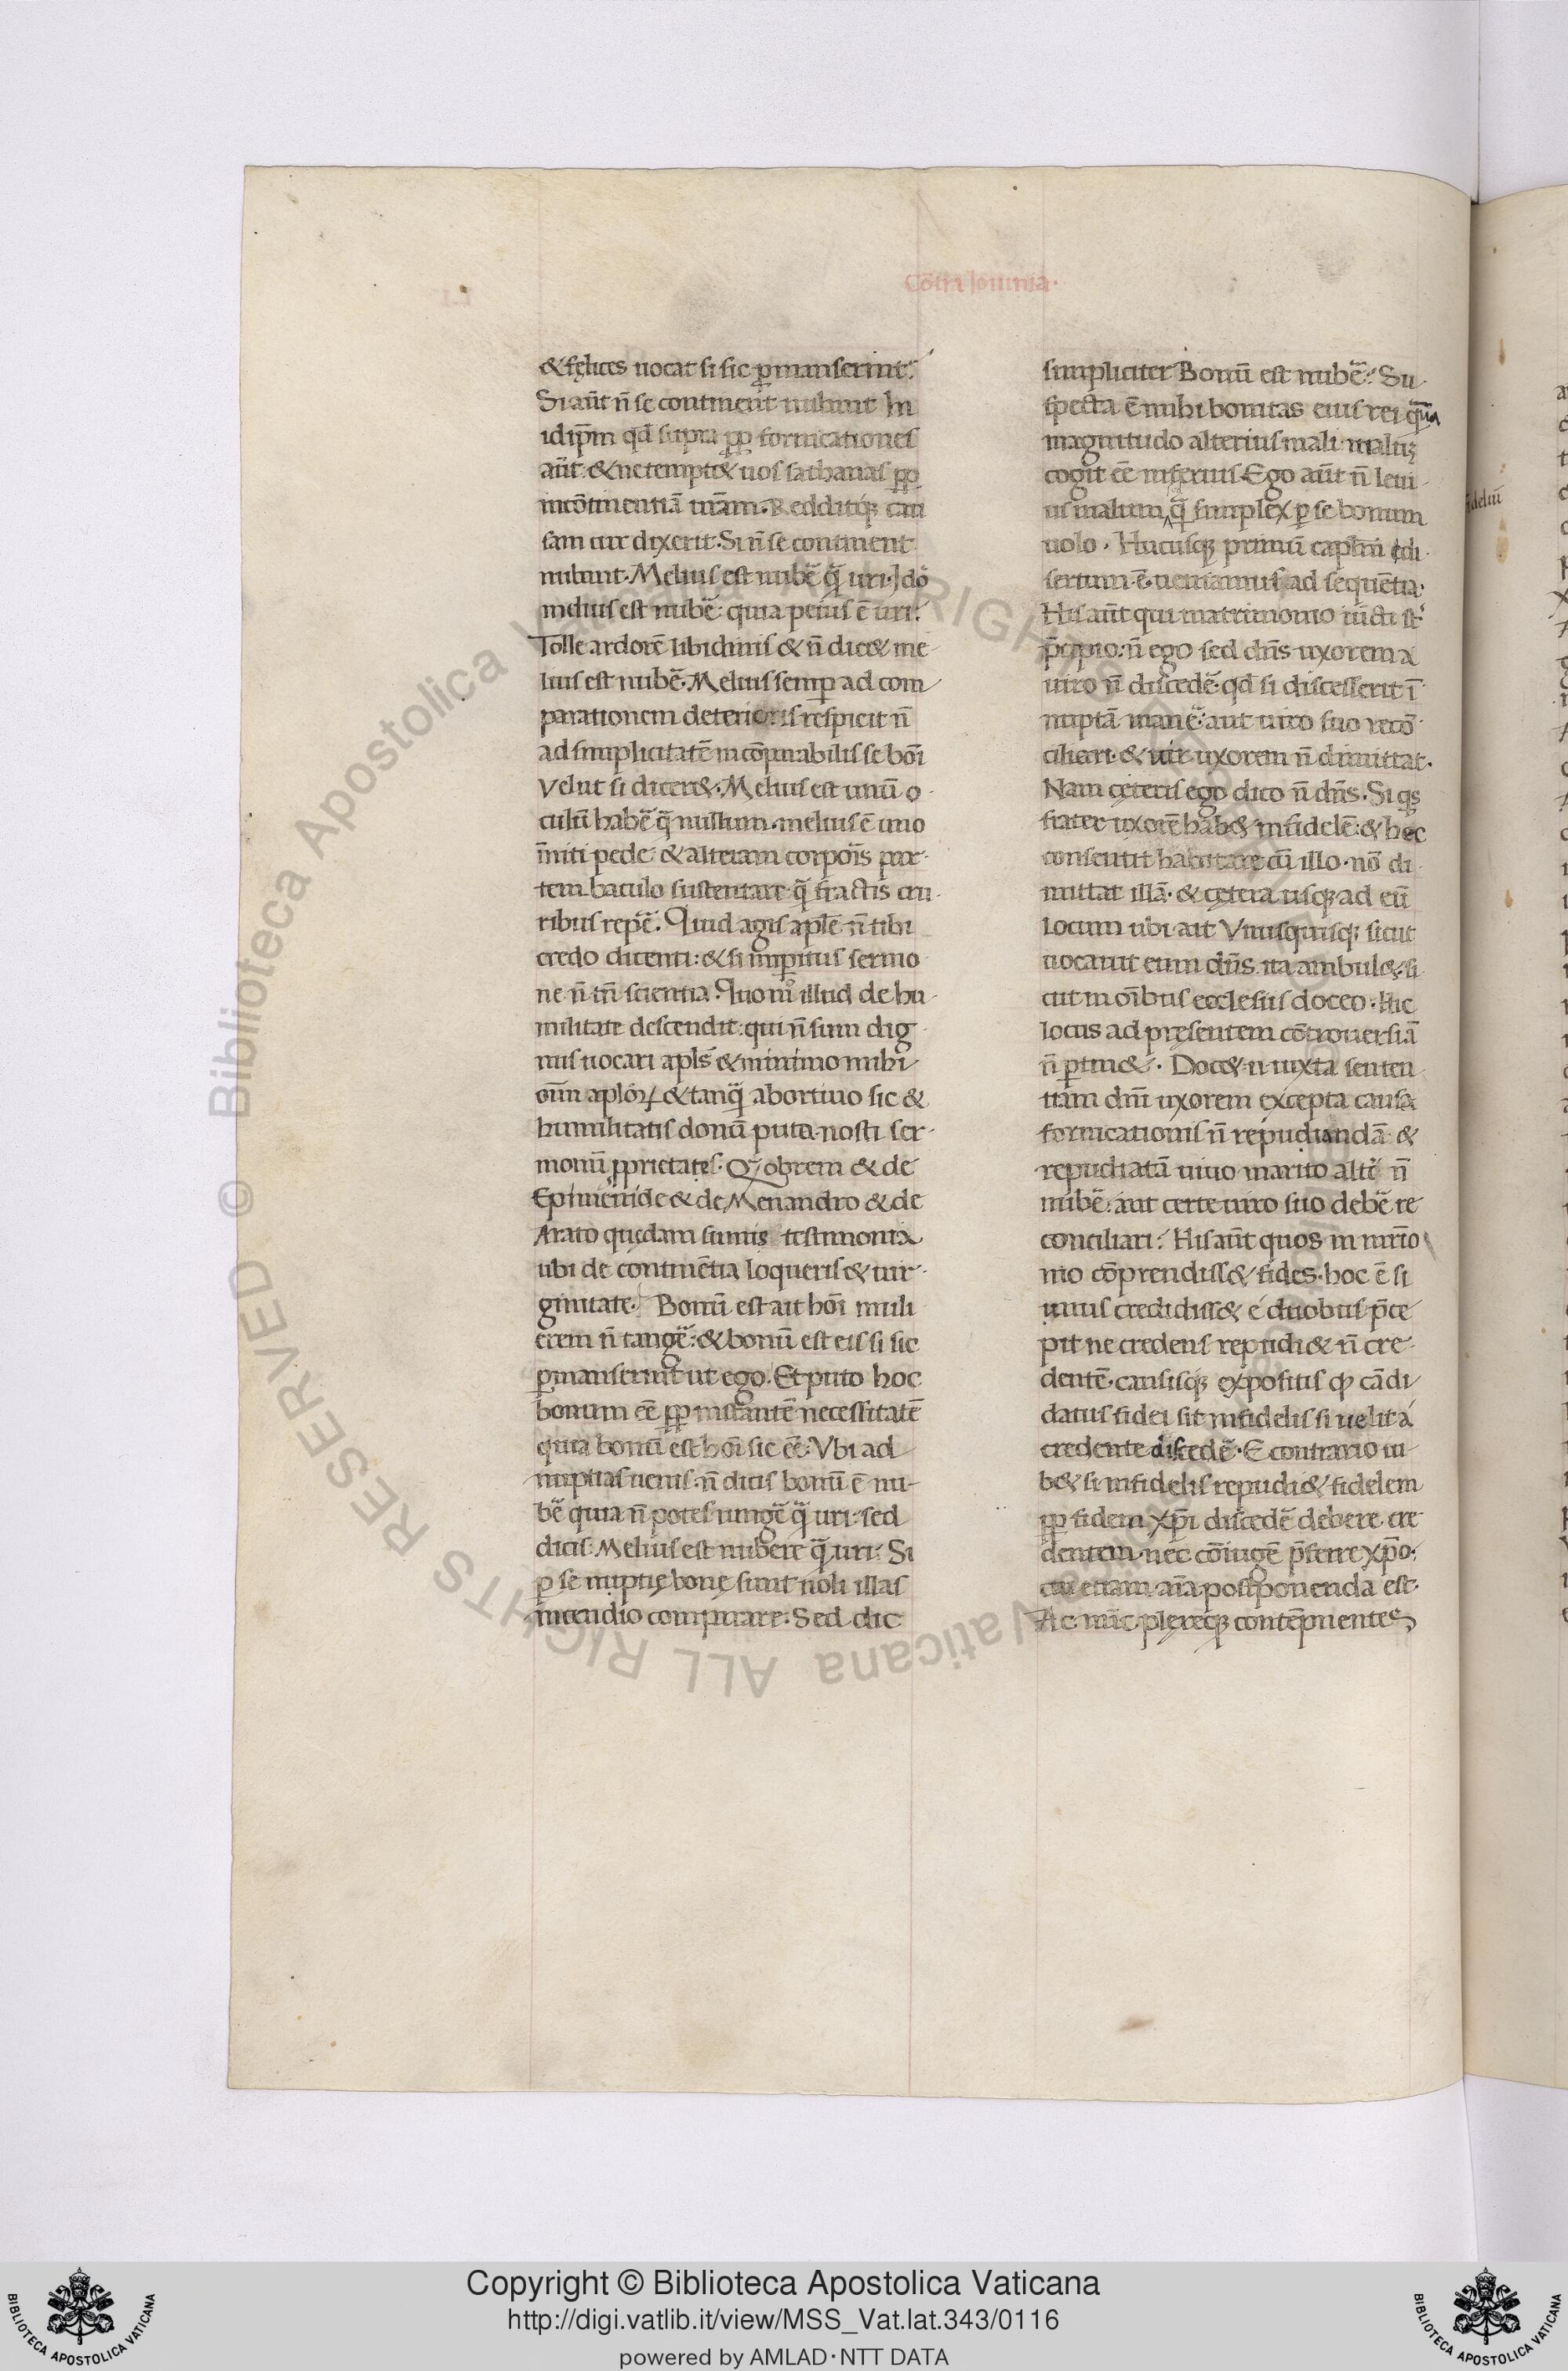 L I
Cōtra Iouinia·
& fęlices uocat si sic ꝑmanserint.
Si aūt n̄ se continent nubant In
idip̄m qđ supra ꝓp fornicationes
aūt· & ne tempt& uos sathanas ꝓp
incōtinentiā urām· Redditq; cau
sam cur dixerit· Si n̄ se continent
nubant· Melius est nubē q̄ uri· Idō
melius est nubē· quia peius ē uri:
Tolle ardorē libidinis & n̄ dic& me
lius est nubē· Melius semꝑ ad com
parationem deterioris respicit n̄
ad simplicitatē incōparabilis se bōi
Velut si dicer&· Melius est unū o
culū habē q̄ nullum· melius ē uno
īniti pede· & alteram corpoīs par
tem baculo sustentare· q̄ fractis cru
ribus repē. Quid agis aplē· n̄ tibi
credo dicenti: & si imꝑitus sermo
ne n̄ tn̄ scientia. Quom̊ illud de hu
militate descendit: qui n̄ sum dig
nus uocari apls̄ & minimo mihi
oīm aplōꝝ & tanq̄ abortiuo sic &
humilitatis donū puta· nosti ser
monū ꝓprietates· Q̄obrem & de
Epimenide & de Menandro & de
Arato quędam sumis testimonia
ubi de continētia loqueris & uir
ginitate· Bonū est ait hōi muli
erem n̄ tangē: & bonū est eis si sic
ꝑmanserint ut ego· Et puto hoc
bonum eē ꝓp instantē necessitatē
quia bonū est hōi sic eē: Vbi ad
nuptias uenis· n̄ dicis bonū ē nu-
bē quia n̄ potes iungē q̄ uri: sed
dicis· Melius est nubere q̄ uri: Si
ꝑ se nuptię bonę sunt noli illas
incendio comparare: Sed dic
simpliciter Bonū est nubē: Su
specta ē mihi bonitas eius rei quā
magnitudo alterius mali malū
cogit eē inferius· Ego aūt n̄ leui
us malum q̄ simplex ꝑ se bonum
uolo· Hucusq; primū capl̄m edi
sertum ē· ueniamus ad sequētia·
His aūt qui matrimonio iūcti st̄
p̄cipio: n̄ ego sed dn̄s uxorem a
uiro n̄ discedē· qđ si discesserit ī
nuptā manē: aut uiro suo recō
ciliari· & uir uxorem n̄ dimittat·
Nam cęteris ego dico n̄ dn̄s· Si qs
frater uxorē hab& infidelē: & hęc
consentit habitare cū illo· nō di
mittat illā· & cętera usq; ad eū
locum ubi ait Vnusquisq; sicut
uocauit eum dn̄s ita ambul&· si
cut in oībus ecclesiis doceo· Hic
locus ad pręsentem cōtrouersiā
n̄ ꝑtin&· Doc& n̄ iuxta senten
tiam dn̄i uxorem excepta causa
fornicationis n̄ repudiandā· &
repudiatā uiuo marito alti n̄
nubē: aut certe uiro suo debē re
conciliari: His aūt quos in mr̄io
nio cōprendiss& fides· hoc ē si
unus credidiss& e duobus p̄ce
pit ne credens repudi& n̄ cre
dentē· causisq; expositis ꝙ cādi
datus fidei sit infidelis si uelit a
credente discedē· E contrario iu
b& si infidelis repudi& fidelem
ꝓp fidem xp̄i discedē debere cre
dentem· nec cōiugē p̄ferre xp̄o:
cui etiam aīa postponenda est·
Ac nūc plęreq; contēpnentes
fideliū
Copyright © Biblioteca Apostolica Vaticana
http://digi.vatlib.it/view/MSS_Vat.lat.343/0116
powered by AMLAD·NTT DATA
© Biblioteca Apostolica Vaticana ALL RIGHTS RESERVED
BIBLIOTECA APOSTOLICA VATICANA
BIBLIOTECA APOSTOLICA VATICANA